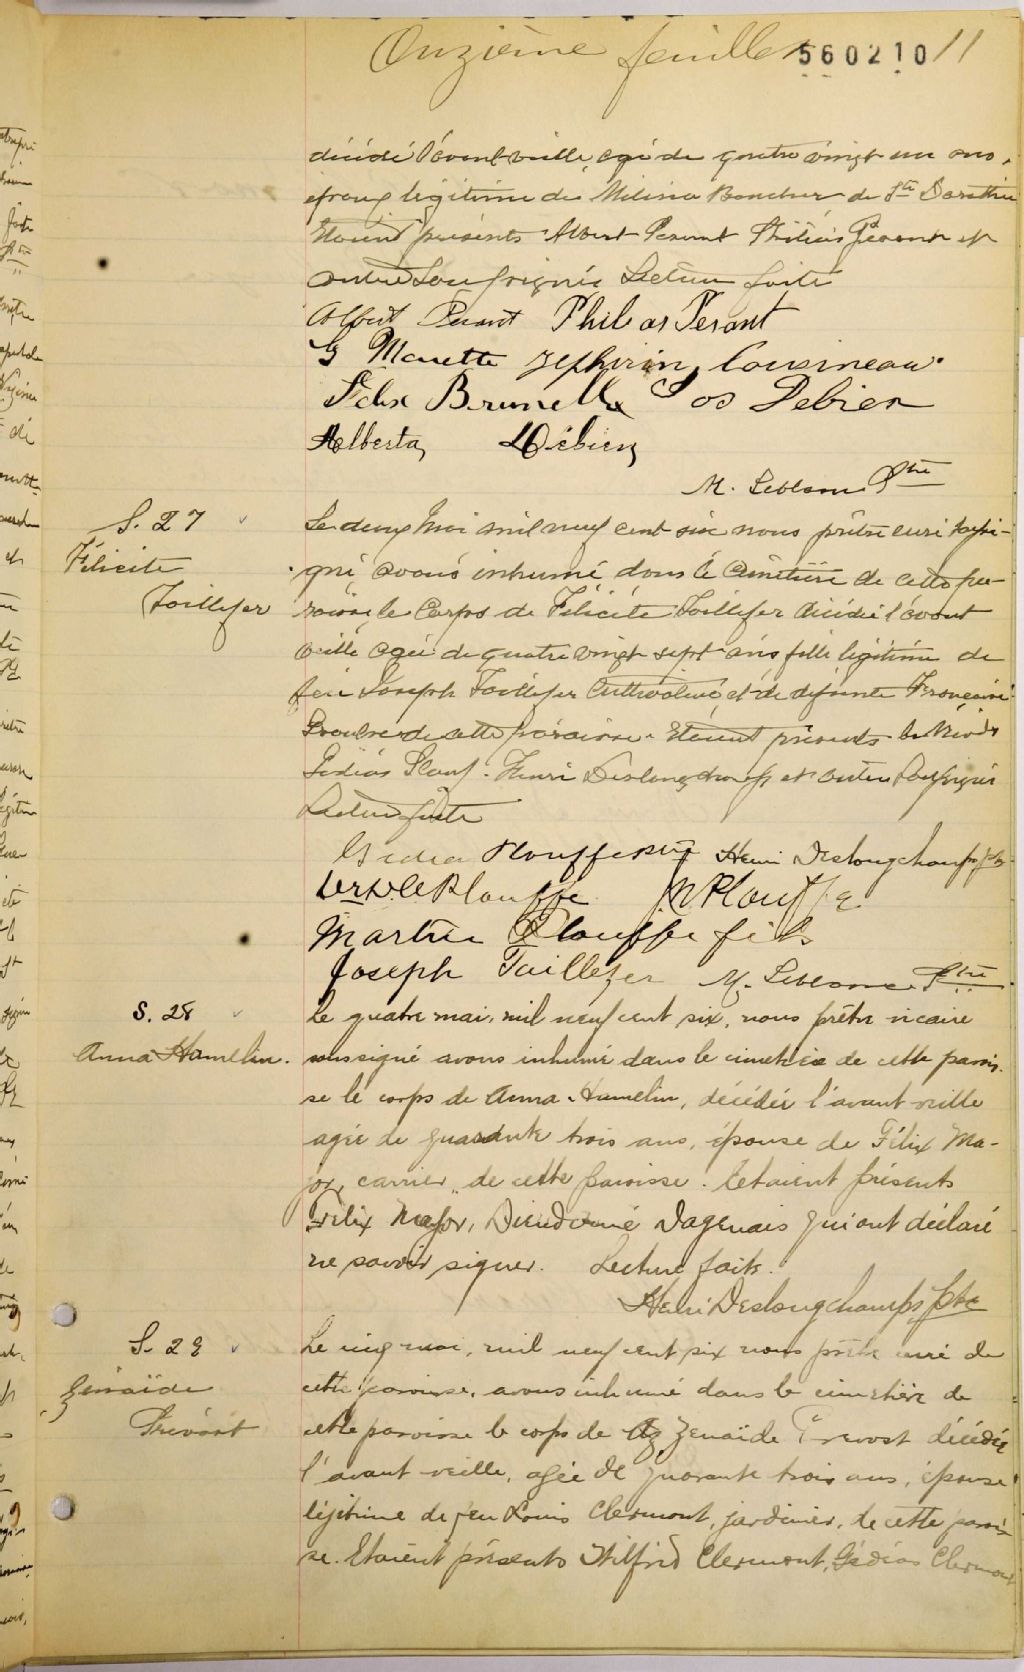 Onzième feuillet 560210 11
décédé l'avant veille, agé de quatre vingt un ans,
époux légitime de Mélina Boucher de Ste Dorothée
Etaient présents Albert Perant Philéas Perant et
autres soussignés Lecture faite
Albert Perant Phileas Perant
G Marette Zephirin Cousineau
Felix Brunelle Jos Debien
Alberta Debien
M. Leblanc Ptre
S. 27
Félicité
Taillefer
Le deux Mai mil neuf cent six nous prêtre curé soussi-
gné avons inhumé dans le cimetière de cette pa-
roisse le corps de Félicité Taillefer décédée l'avant
veille agée de quatre vingt sept ans fille légitime de
feu Joseph Taillefer Cultivateur et de défunte Françoise
de cette paroisse. Etaient présents les Révds
Gédéas Plouf. Henri Deslongchamps et autres soussignés
Lecture faite
Gedeas Plouffe ptre Henri Deslongchamps ptr
Plouffe Plouffe
Martin Plouffe fils
Joseph Taillefer M. Leblanc Ptre
S. 28
Anna Hamelin.
Le quatre mai, mil neuf cent six, nous prêtre vicaire
soussigné avons inhumé dans le cimetière de cette parois-
se le corps de Anna Hamelin, décédée l'avant veille
agée de quarante trois ans, épouse de Félix Ma-
jor, carrier, de cette paroisse. Etaient présents
Félix Major, Dieudonné Dagenais qui ont déclaré
ne savoir signer. Lecture faite.
Henri Deslongchamps, ptre
S. 29
Zénaïde
Prévost
Le cinq mai, mil neuf cent six nous prêtre curé de
cette paroisse, avons inhumé dans le cimetière de
cette paroisse le corps de Zenaïde Prevost décédée
l'avant veille, agée de quarante trois ans, épouse
légitime de feu Louis Clermont, jardinier, de cette parois-
se. Etaient présents Wilfrid Clermont, Gédéas Clermont